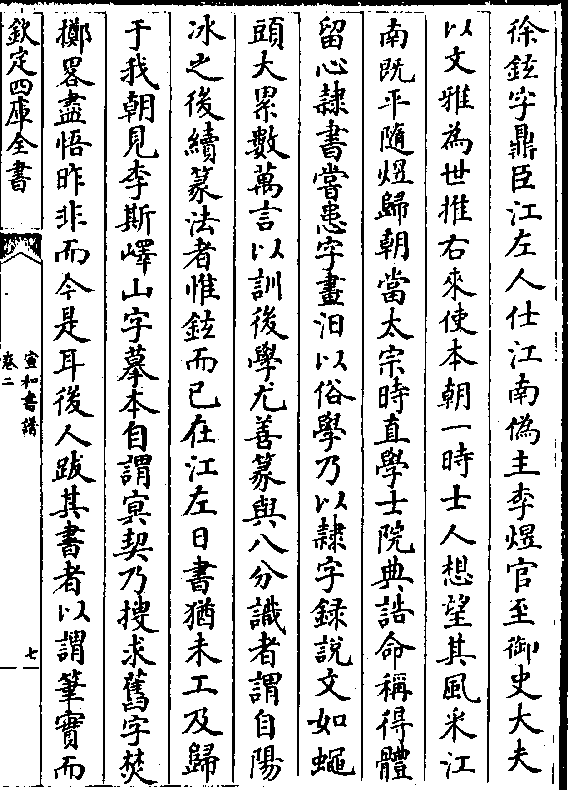 徐鉉字鼎臣江左人仕江南偽主李煜官至御史大夫
以文雅為世推右來使本朝一時士人想望其風采江
南既平隨煜歸朝當太宗時直學士院典誥命稱得體
留心隷書嘗患字畫汨以俗學乃以隷字録説文如蠅
頭大累數萬言以訓後學尤善篆與八分識者謂自陽
冰之後續篆法者惟鉉而已在江左日書猶未工及歸
于我朝見李斯嶧山字摹本自謂冥契乃搜求舊字焚
擲畧盡悟昨非而今是耳後人跋其書者以謂筆實而
欽定四庫全書
宣和書譜
卷二
七